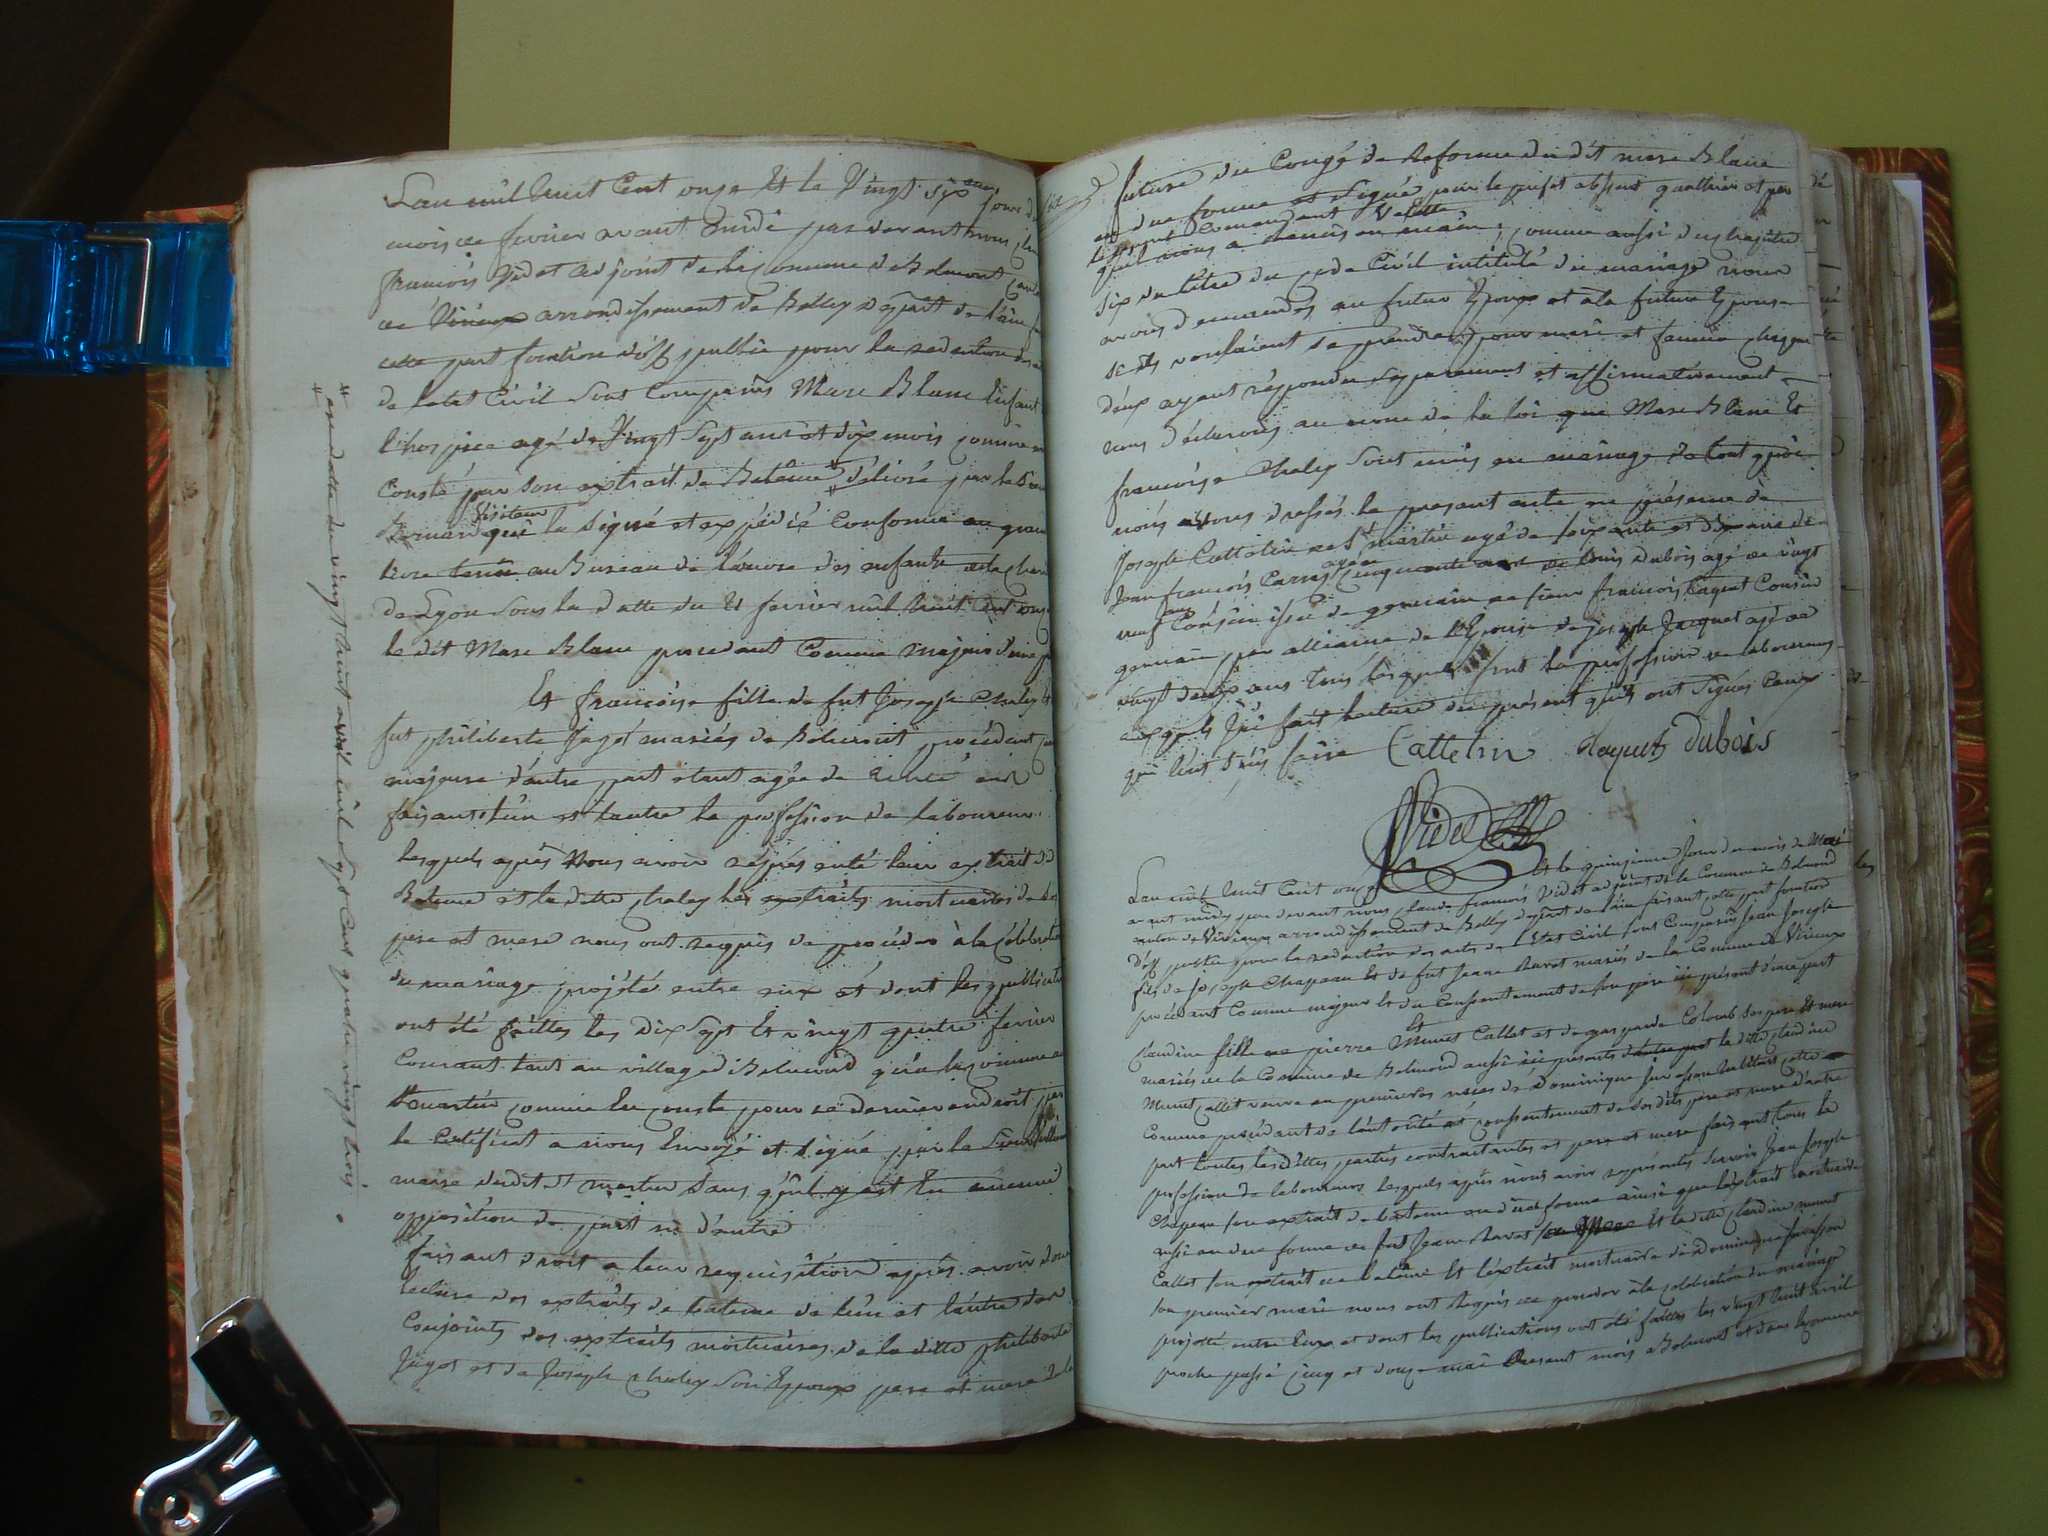 Lan mil huit Cent onze Et le Vingt six eme jour du
mois de fevrier avant midi par devant nous
francois Videt adjoint de la Comune de Belmont
de Virieux arrondissement de Belley depart de l'ain
cette part fonction d'off public pour la redaction des
de letat Civil Sont Comparus Marc Blanc Enfant
l'hospice agé de Vingt Sept ans et dix mois comme
Conste par Son extrait de Bateme délivré par le S
visiteur
qui la signé et expédié Conforme au grand
livre tenu au Bureau de l'œuvre des enfants de la
de Lyon Sous la datte du 21 fevrier mil huit Cent onze
le dit Marc Blanc procedant Comme majeur d'une
Et francoise fille de fut Joseph Chaley et
fut philiberte Jagot mariés de Belmont procédant
majeure d'autre part étant agée de trente ans
faisant l'un et lautre la profession de laboureur
lesquels après Nous avoir représenté leur extrait de
Bateme et la ditte Chaley les extraits mortuaires de ses
pere et mere nous ont requis de procéder à la célébration
du mariage projété entre eux et dont les publications
ont été faittes les dix Sept Et vingt quatre fevrier
Courant tant au village de Belmond qu'a la commune de
St martin comme En conste pour ce dernier endroit par
le Certificat a nous Envoyé et signé par le Sieur
maire dudit St martin Sans qu'il y ait Eu aucune
opposition de part ni d'autre
faisant droit a leur requisition après avoir donné
lecture des extraits de bateme de l'un et lautre des
Conjoints des extraits mortuaires de la ditte philiberte
Jagot et de Joseph Chaley Son Epoux pere et mere de la
en datte du vingt huit avril mil Sept Cent quatre vingt trois
future du Congé de Reforme du dit marc Blanc
en due forme et Signé pour le prefet absent
Comandant Valette
qu'il nous a remis en main, comme aussi du chapitre
six du titre du code Civil intitulé du mariage nous
avons demandés au futur Epoux et à la future Epouse
s'ils voulaient se prendre pour mari et femme chaque
deux ayant répondu séparement et affirmativement
nous déclarons au nom de la loi que Marc Blanc Et
francoise Chaley sont unis en mariage de tout quoi
nous avons dressés le present acte en présence de
Joseph Cattelin de St martin agé de soixante et dix ans de
agé de
Jean francois Carrel Cinquante ans de louis Dubois agé de vingt
neuf ans Cousin issu de germain de sieur francois Cousin
germain par alliance de l'Epouse de Joseph Jacquet agé de
vingt deux ans tous lesquels font la profession de laboureurs
auxquels J'ai fait lecture du présent qu'ils ont signés Ceux
qui l'ont scus faire Cattelin Jaquet dubois
Videt
Lan mil huit Cent onze Et le quinzieme jour du mois de Mai
avant midy par devant nous claude francois Videt adjoint de la Comune de Belmond
canton de Virieux arrondissement de Belley depart de l'ain faisant cette part fonction
d'off public pour la redaction des actes de l'Etat Civil sont Comparus Jean Joseph
fils de Joseph Chapeau Et de fut Jeanne Ravet mariés de la Commune de Virieux
procédant Comme majeur Et du Consentement de son pere ici présent d'une part
Et
Claudine fille de pierre Munet Callet et de gasparde Colomb ses pere Et mere
mariés de la Commune de Belmond aussi ici présents d'autre part la ditte Claudine
Munet Callet veuve en premieres noces de Dominique
Comme procédant de l'autorité et consentement de ses dits pere et mere d'autre
part toutes lesdittes parties contractantes et pere et mere faisant tous la
profession de laboureurs lesquels après nous avoir représentés Savoir Jean Joseph
Chapeau son extrait de bateme en due forme ainsi que l'extrait mortuaire
aussi en due forme de fut Jeanne Ravet sa Mere Et la ditte Claudine munet
Callet son extrait de bateme Et l'extrait mortuaire de Dominique
son premier mari nous ont requis de proceder à la celebration du mariage
projetté entre Eux et dont les publications ont été faittes les vingt huit avril
proche passé cinq et douze mai Present mois a Belmont et dans la commune